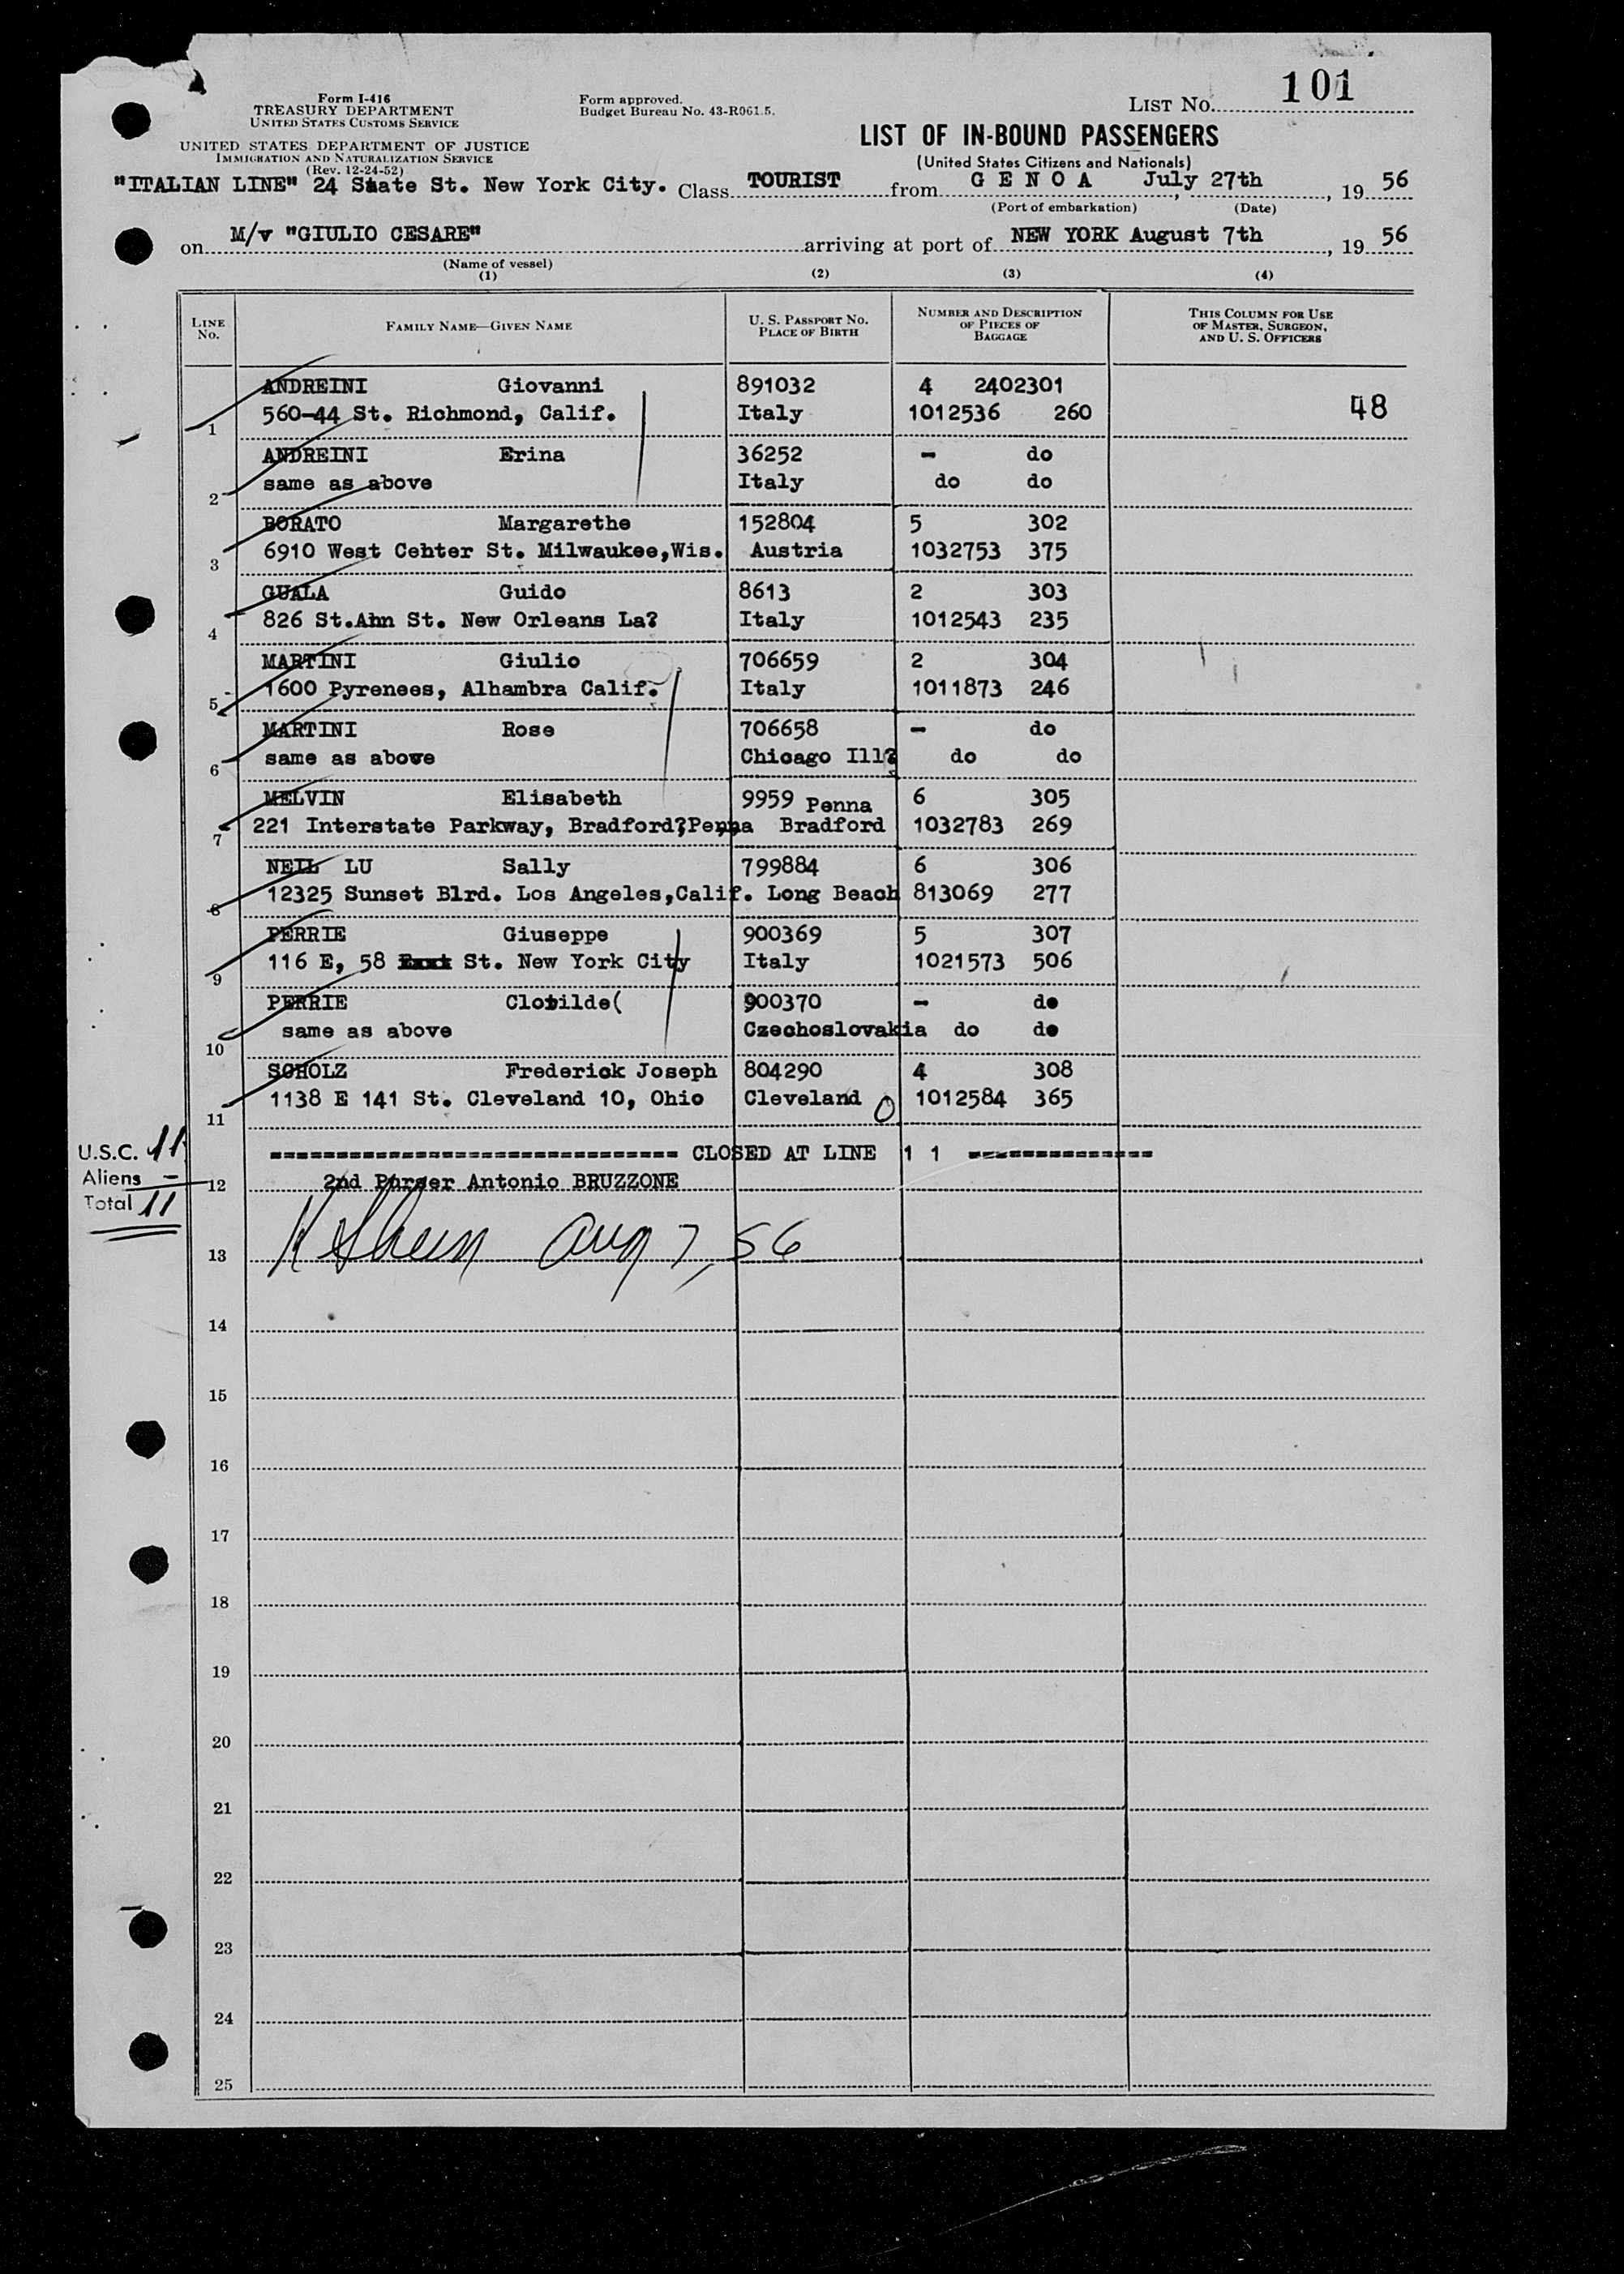 101
Form I-416
TREASURY DEPARTMENT
UNITED STATES CUSTOMS SERVICE
UNITED STATES DEPARTMENT OF JUSTICE
IMMIGRATION AND NATURALIZATION SERVICE
(Rev. 12-24-52)
Form approved.
Budget Bureau No. 43-R061.5.
LIST NO.
LIST OF IN-BOUND PASSENGERS
(United States Citizens and Nationals)
"ITALIAN LINE" 24 State St. New York City. Class TOURIST from G E N O A, July 27th, 19 56
(Port of embarkation) (Date)
on M/v "GIULIO CESARE" arriving at port of NEW YORK August 7th, 19 56
(Name of vessel)
(1) (2) (3) (4)
LINE NO. FAMILY NAME—GIVEN NAME U. S. PASSPORT NO. PLACE OF BIRTH NUMBER AND DESCRIPTION OF PIECES OF BAGGAGE THIS COLUMN FOR USE OF MASTER, SURGEON, AND U. S. OFFICERS
ANDREINI Giovanni 891032 4 2402301
1 560-44 St. Richmond, Calif. Italy 1012536 260 48
ANDREINI Erina 36252 - do
2 same as above Italy do do
BORATO Margarethe 152804 5 302
3 6910 West Cehter St. Milwaukee,Wis. Austria 1032753 375
GUALA Guido 8613 2 303
4 826 St.Ann St. New Orleans La? Italy 1012543 235
MARTINI Giulio 706659 2 304
5 1600 Pyrenees, Alhambra Calif. Italy 1011873 246
MARTINI Rose 706658 - do
6 same as above Chicago Ill? do do
MELVIN Elisabeth 9959 Penna 6 305
7 221 Interstate Parkway, Bradford?Penna Bradford 1032783 269
NEIL LU Sally 799884 6 306
8 12325 Sunset Blrd. Los Angeles,Calif. Long Beach 813069 277
PERRIE Giuseppe 900369 5 307
9 116 E, 58 St. New York City Italy 1021573 506
PERRIE Clotilde( 900370 - do
10 same as above Czechoslovakia do do
SCHOLZ Frederick Joseph 804290 4 308
11 1138 E 141 St. Cleveland 10, Ohio Cleveland O 1012584 365
U.S.C. 11
Aliens -
Total 11
CLOSED AT LINE 1 1
12 2nd Purser Antonio BRUZZONE
13 Aug 7, 56
14
15
16
17
18
19
20
21
22
23
24
25